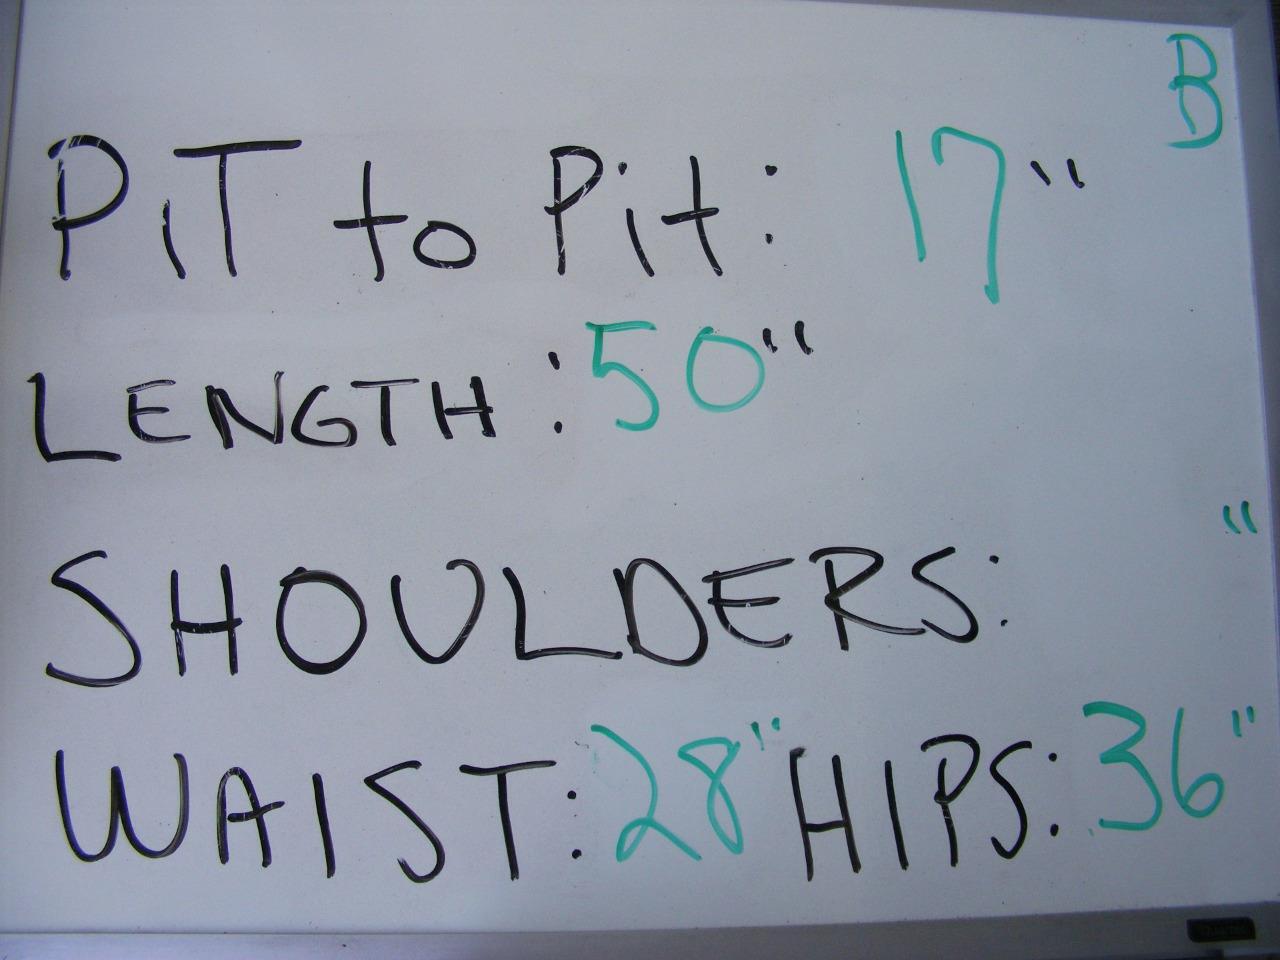 B
PiT to Pit: 17"
LENGTH: 50"
SHOULDERS: "
WAIST: 28" HIPS: 36"